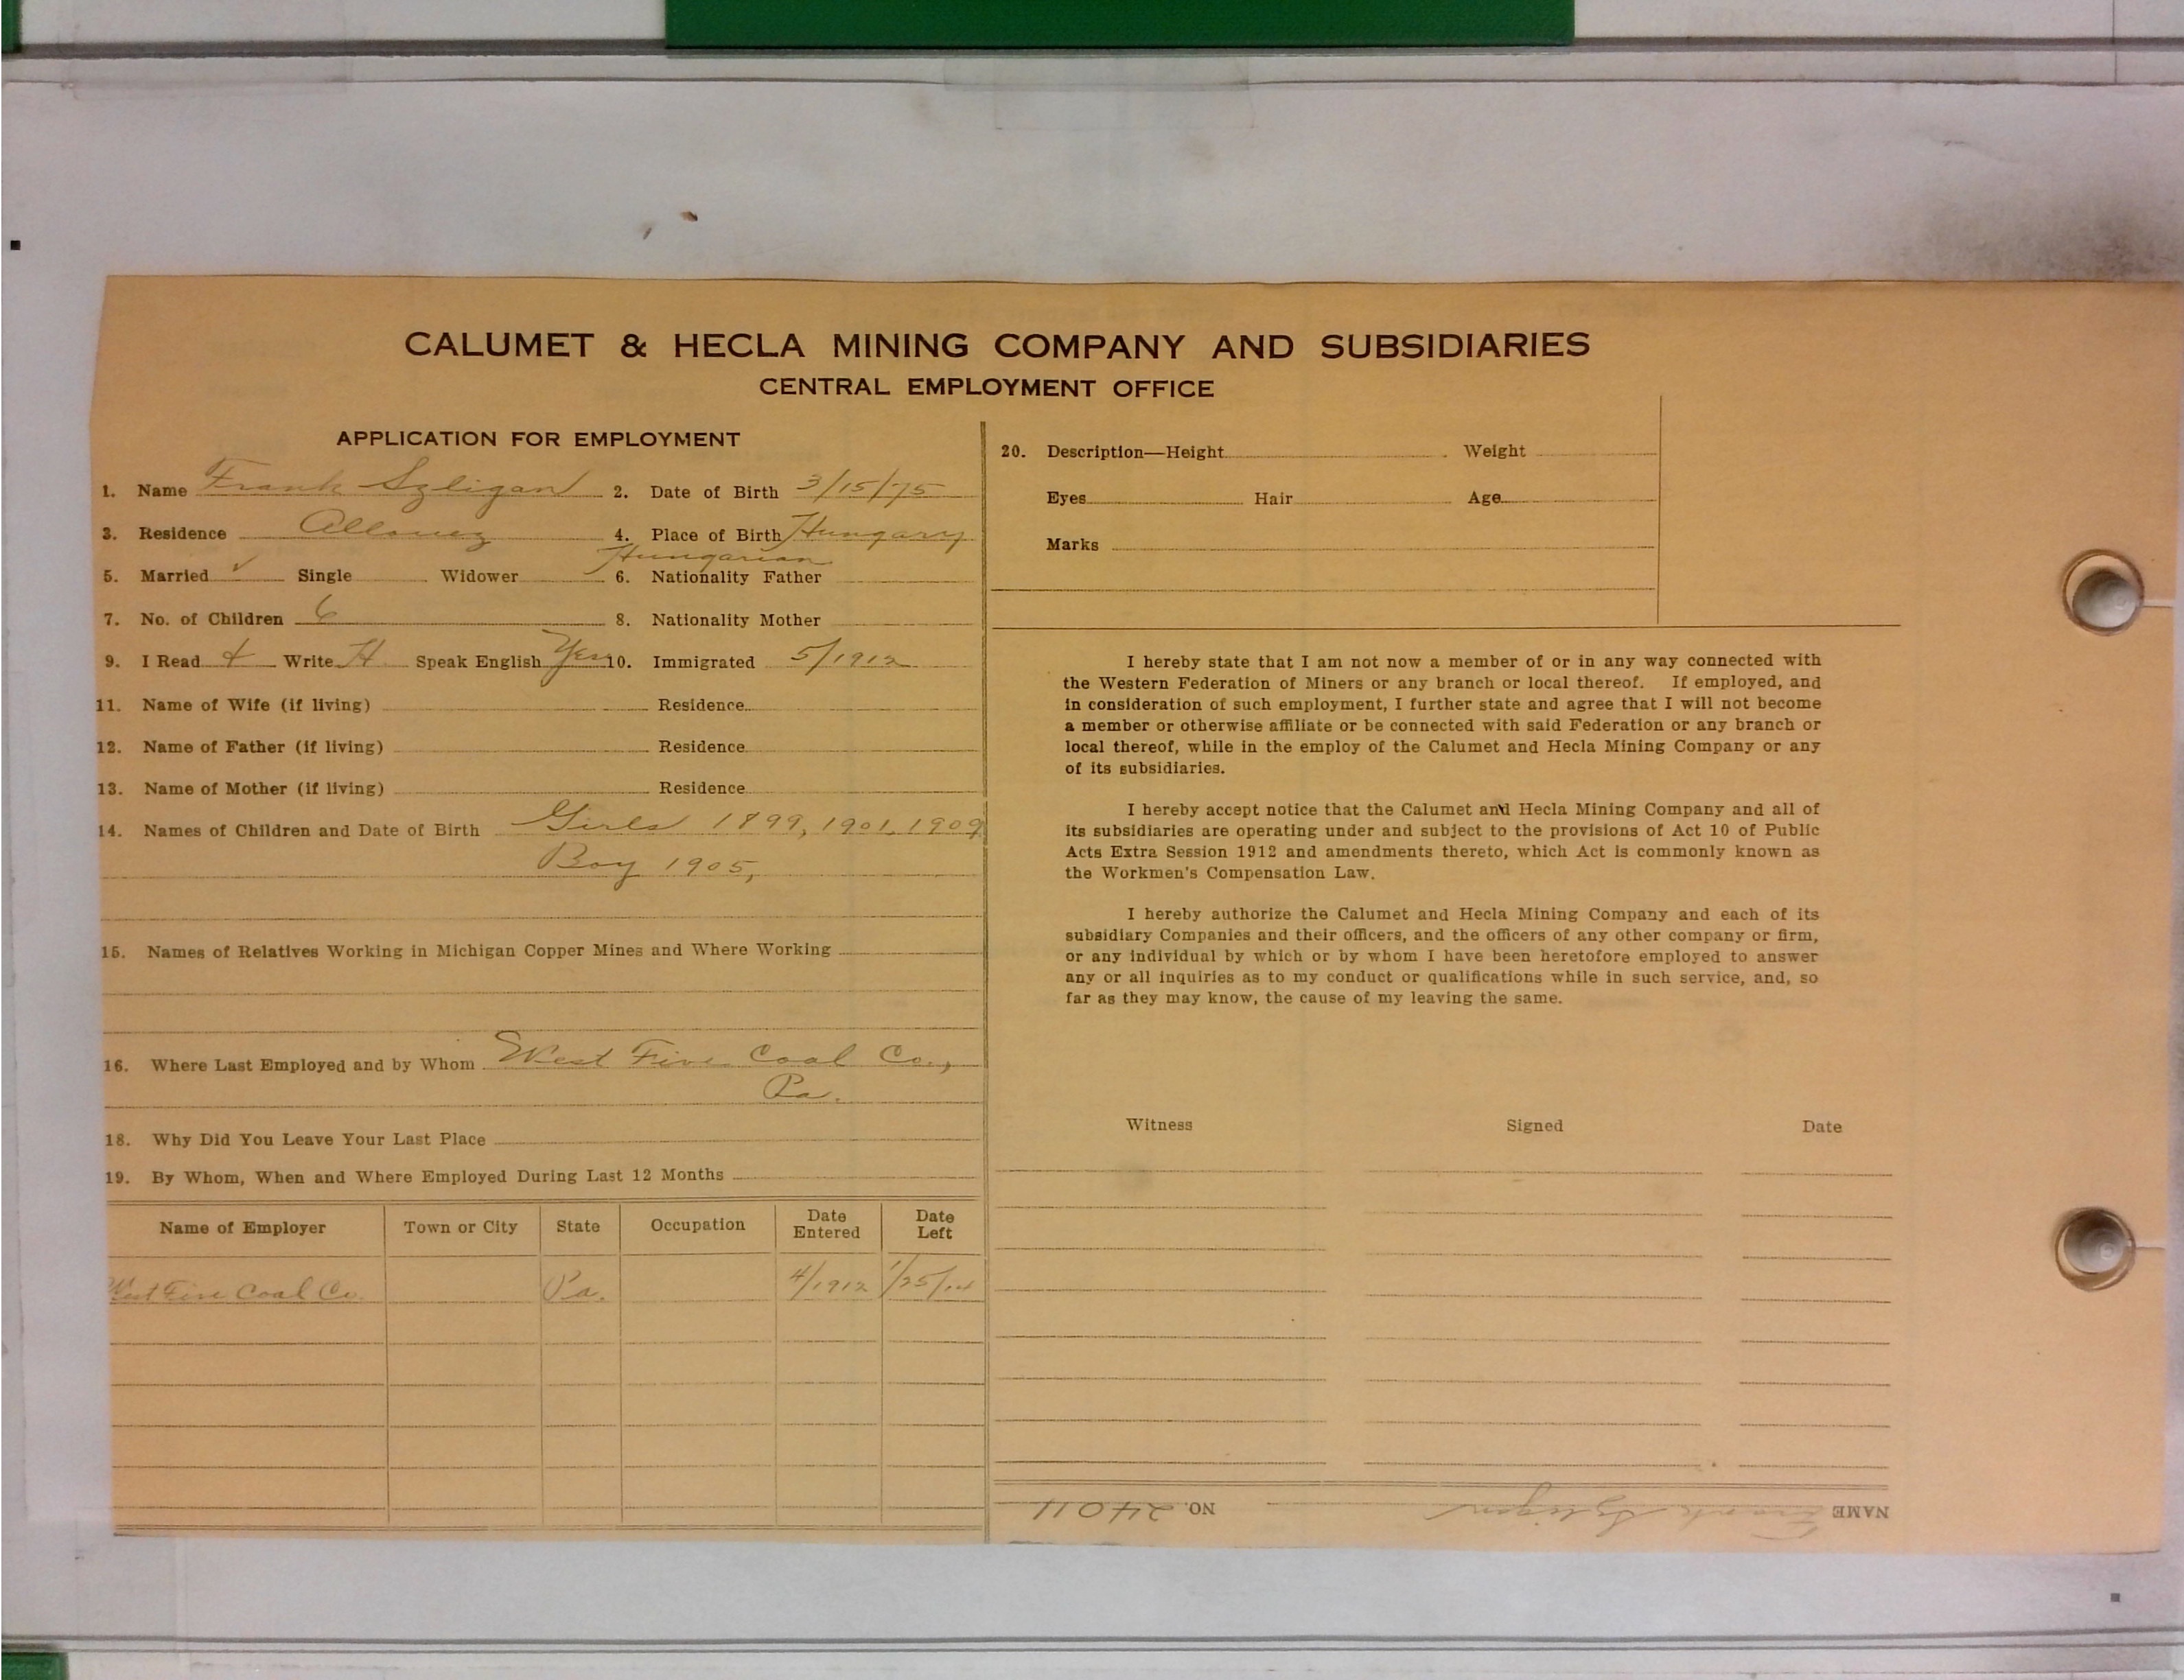 CALUMET & HECLA MINING COMPANY AND SUBSIDIARIES
CENTRAL EMPLOYMENT OFFICE
APPLICATION FOR EMPLOYMENT
1. Name Frank Szligan 2. Date of Birth 3/15/75
3. Residence Allouez 4. Place of Birth Hungary
Hungarian
5. Married ✓ Single Widower 6. Nationality Father
7. No. of Children 6 8. Nationality Mother
9. I Read Write H Speak English Yes 10. Immigrated 5/1912
11. Name of Wife (if living) Residence
12. Name of Father (if living) Residence
13. Name of Mother (if living) Residence
14. Names of Children and Date of Birth Girls 1899, 1901, 1909
Boy 1905,
15. Names of Relatives Working in Michigan Copper Mines and Where Working
16. Where Last Employed and by Whom West Five Coal Co.,
Pa.
18. Why Did You Leave Your Last Place
19. By Whom, When and Where Employed During Last 12 Months
Name of Employer Town or City State Occupation Date Entered Date Left
West Five Coal Co. Pa. 4/1912 1/25/14
20. Description—Height Weight
Eyes Hair Age
Marks
I hereby state that I am not now a member of or in any way connected with
the Western Federation of Miners or any branch or local thereof. If employed, and
in consideration of such employment, I further state and agree that I will not become
a member or otherwise affiliate or be connected with said Federation or any branch or
local thereof, while in the employ of the Calumet and Hecla Mining Company or any
of its subsidiaries.
I hereby accept notice that the Calumet and Hecla Mining Company and all of
its subsidiaries are operating under and subject to the provisions of Act 10 of Public
Acts Extra Session 1912 and amendments thereto, which Act is commonly known as
the Workmen's Compensation Law.
I hereby authorize the Calumet and Hecla Mining Company and each of its
subsidiary Companies and their officers, and the officers of any other company or firm,
or any individual by which or by whom I have been heretofore employed to answer
any or all inquiries as to my conduct or qualifications while in such service, and, so
far as they may know, the cause of my leaving the same.
Witness Signed Date
NAME Frank Szligan NO. 24011